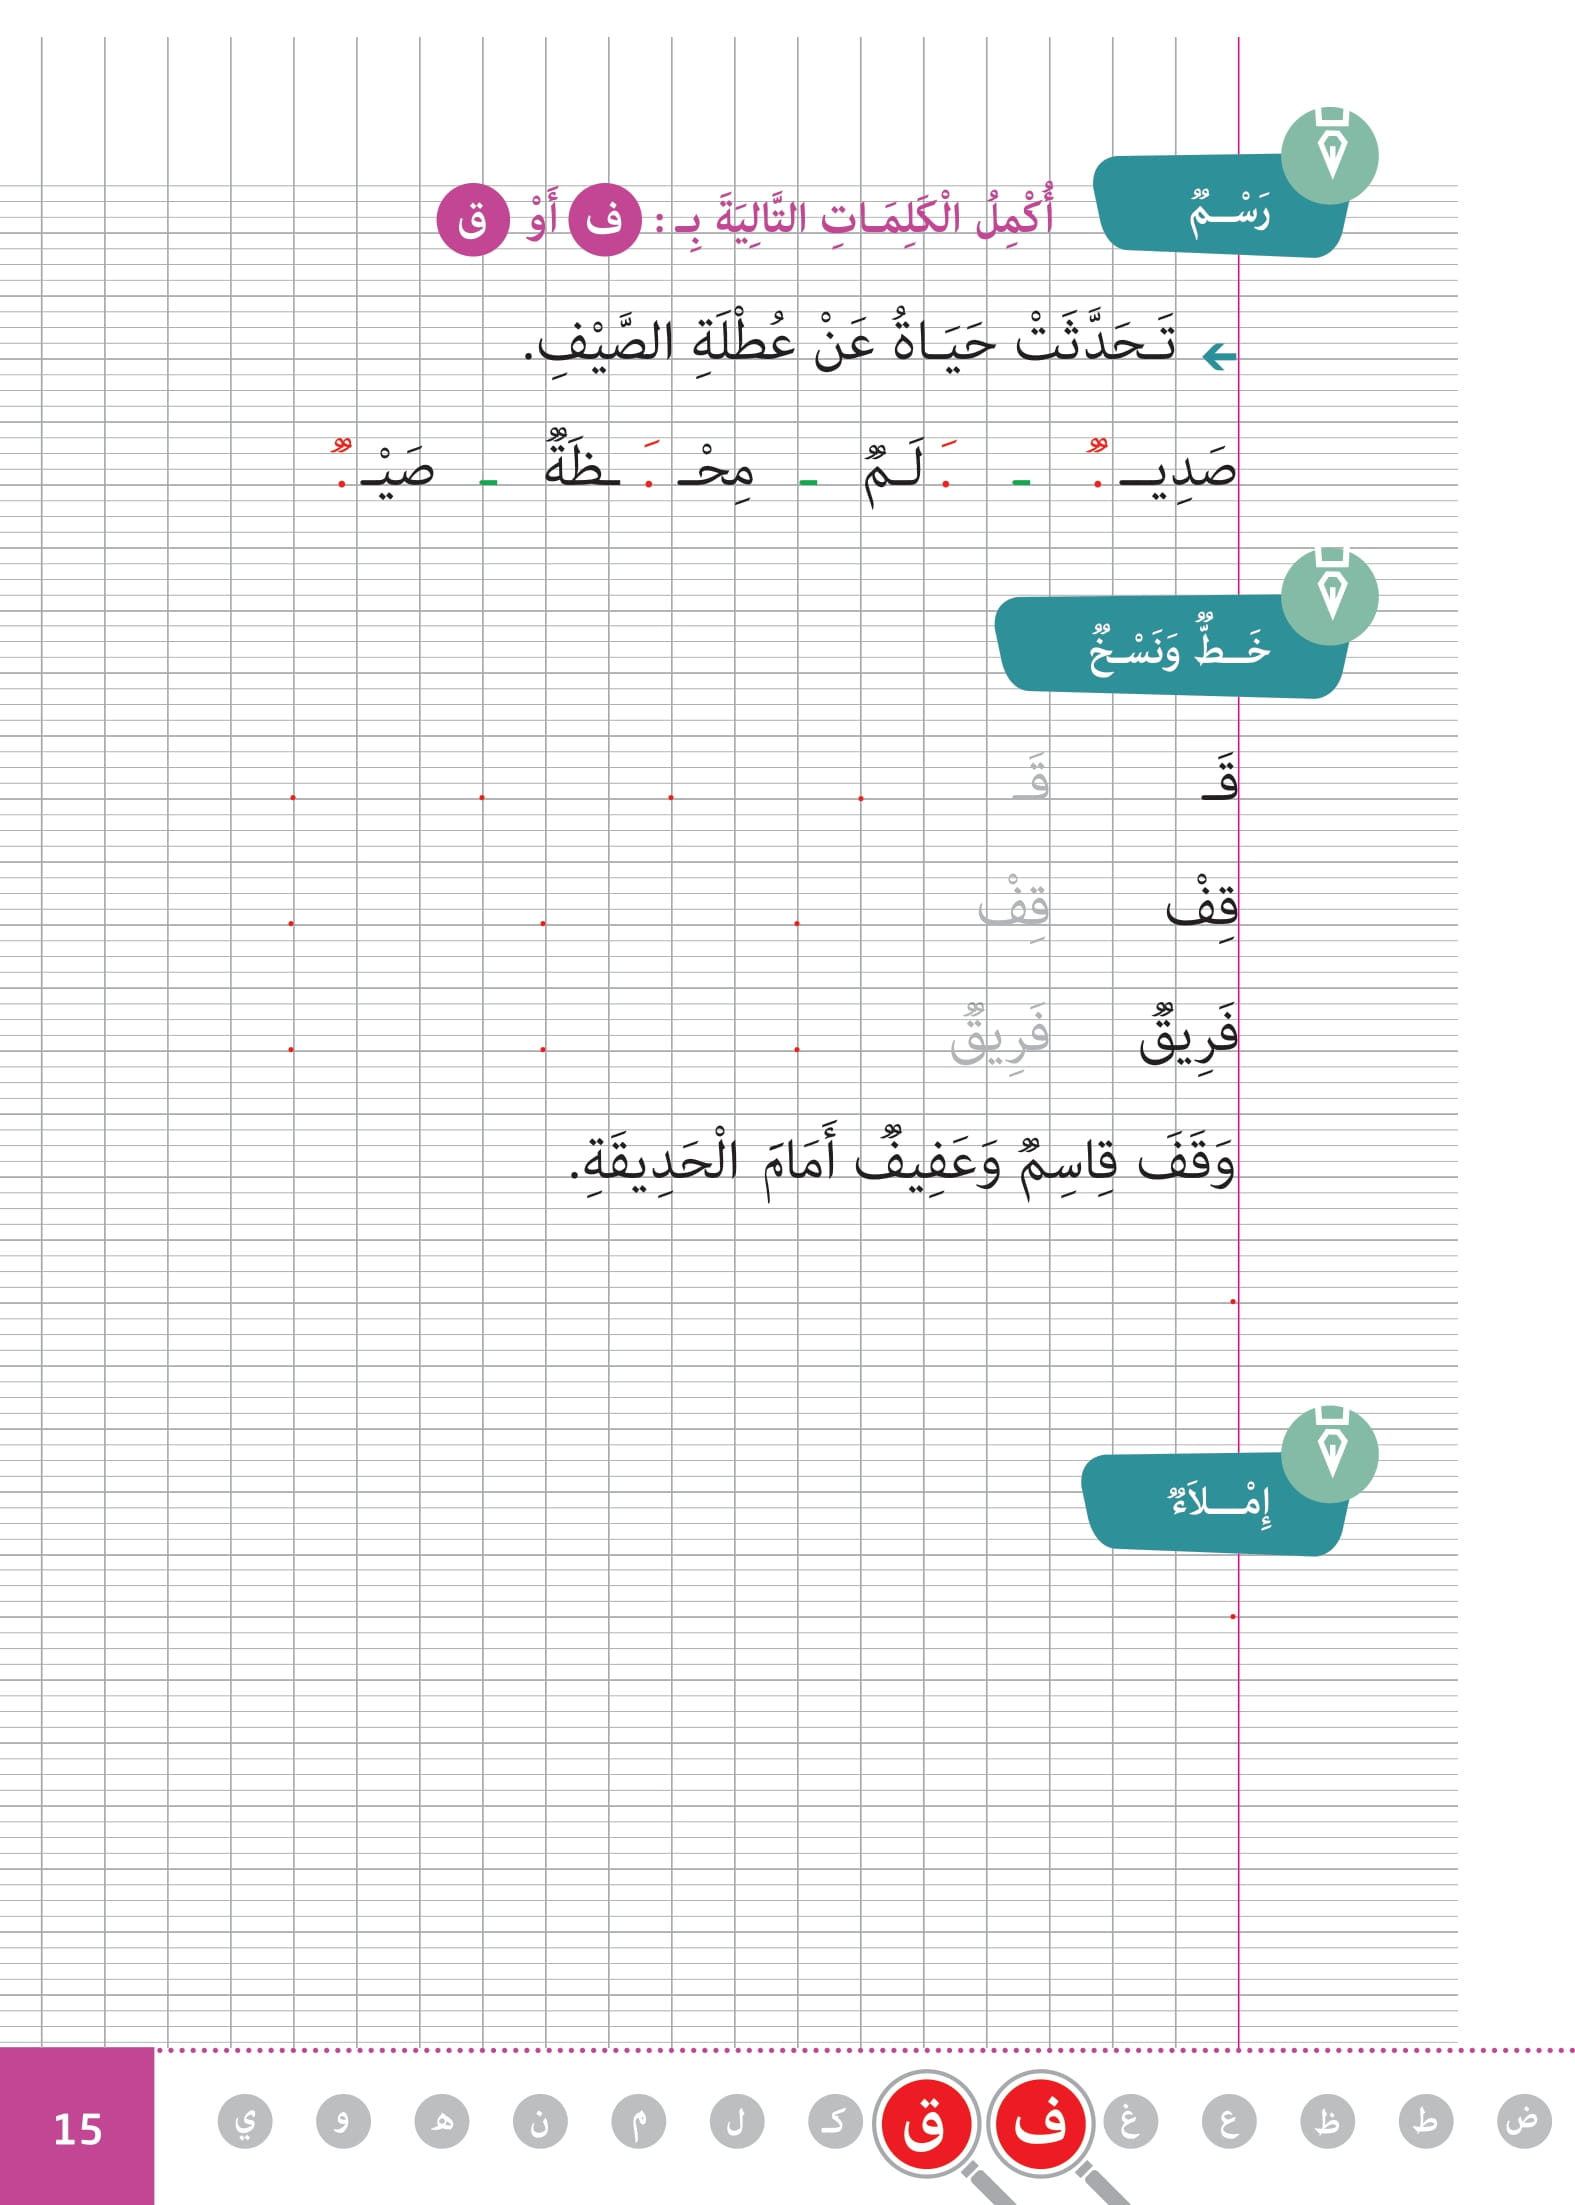 رَسْـــمٌ
أُكْمِلُ الْكَلِمَـاتِ التَّالِيَةَ بِـ : ف أَوْ ق
تَـحَدَّثَتْ حَيَـاةُ عَنْ عُطْلَةِ الصَّيْفِ.
صَدِيــ .ٌ - .َ لَـمٌ - مِحْـ .َ ـظَةٌ - صَيْـ .ٌ
خَـــطٌّ وَنَسْـخٌ
قَـ قَـ . . . .
قِفْ قِفْ . . .
فَرِيقٌ فَرِيقٌ . . .
وَقَفَ قِاسِمٌ وَعَفِيفٌ أَمَامَ الْحَدِيقَةِ.
.
إِمْـــلَاءٌ
.
ض ط ظ ع غ ف ق كـ ل م ن هـ و ي
15